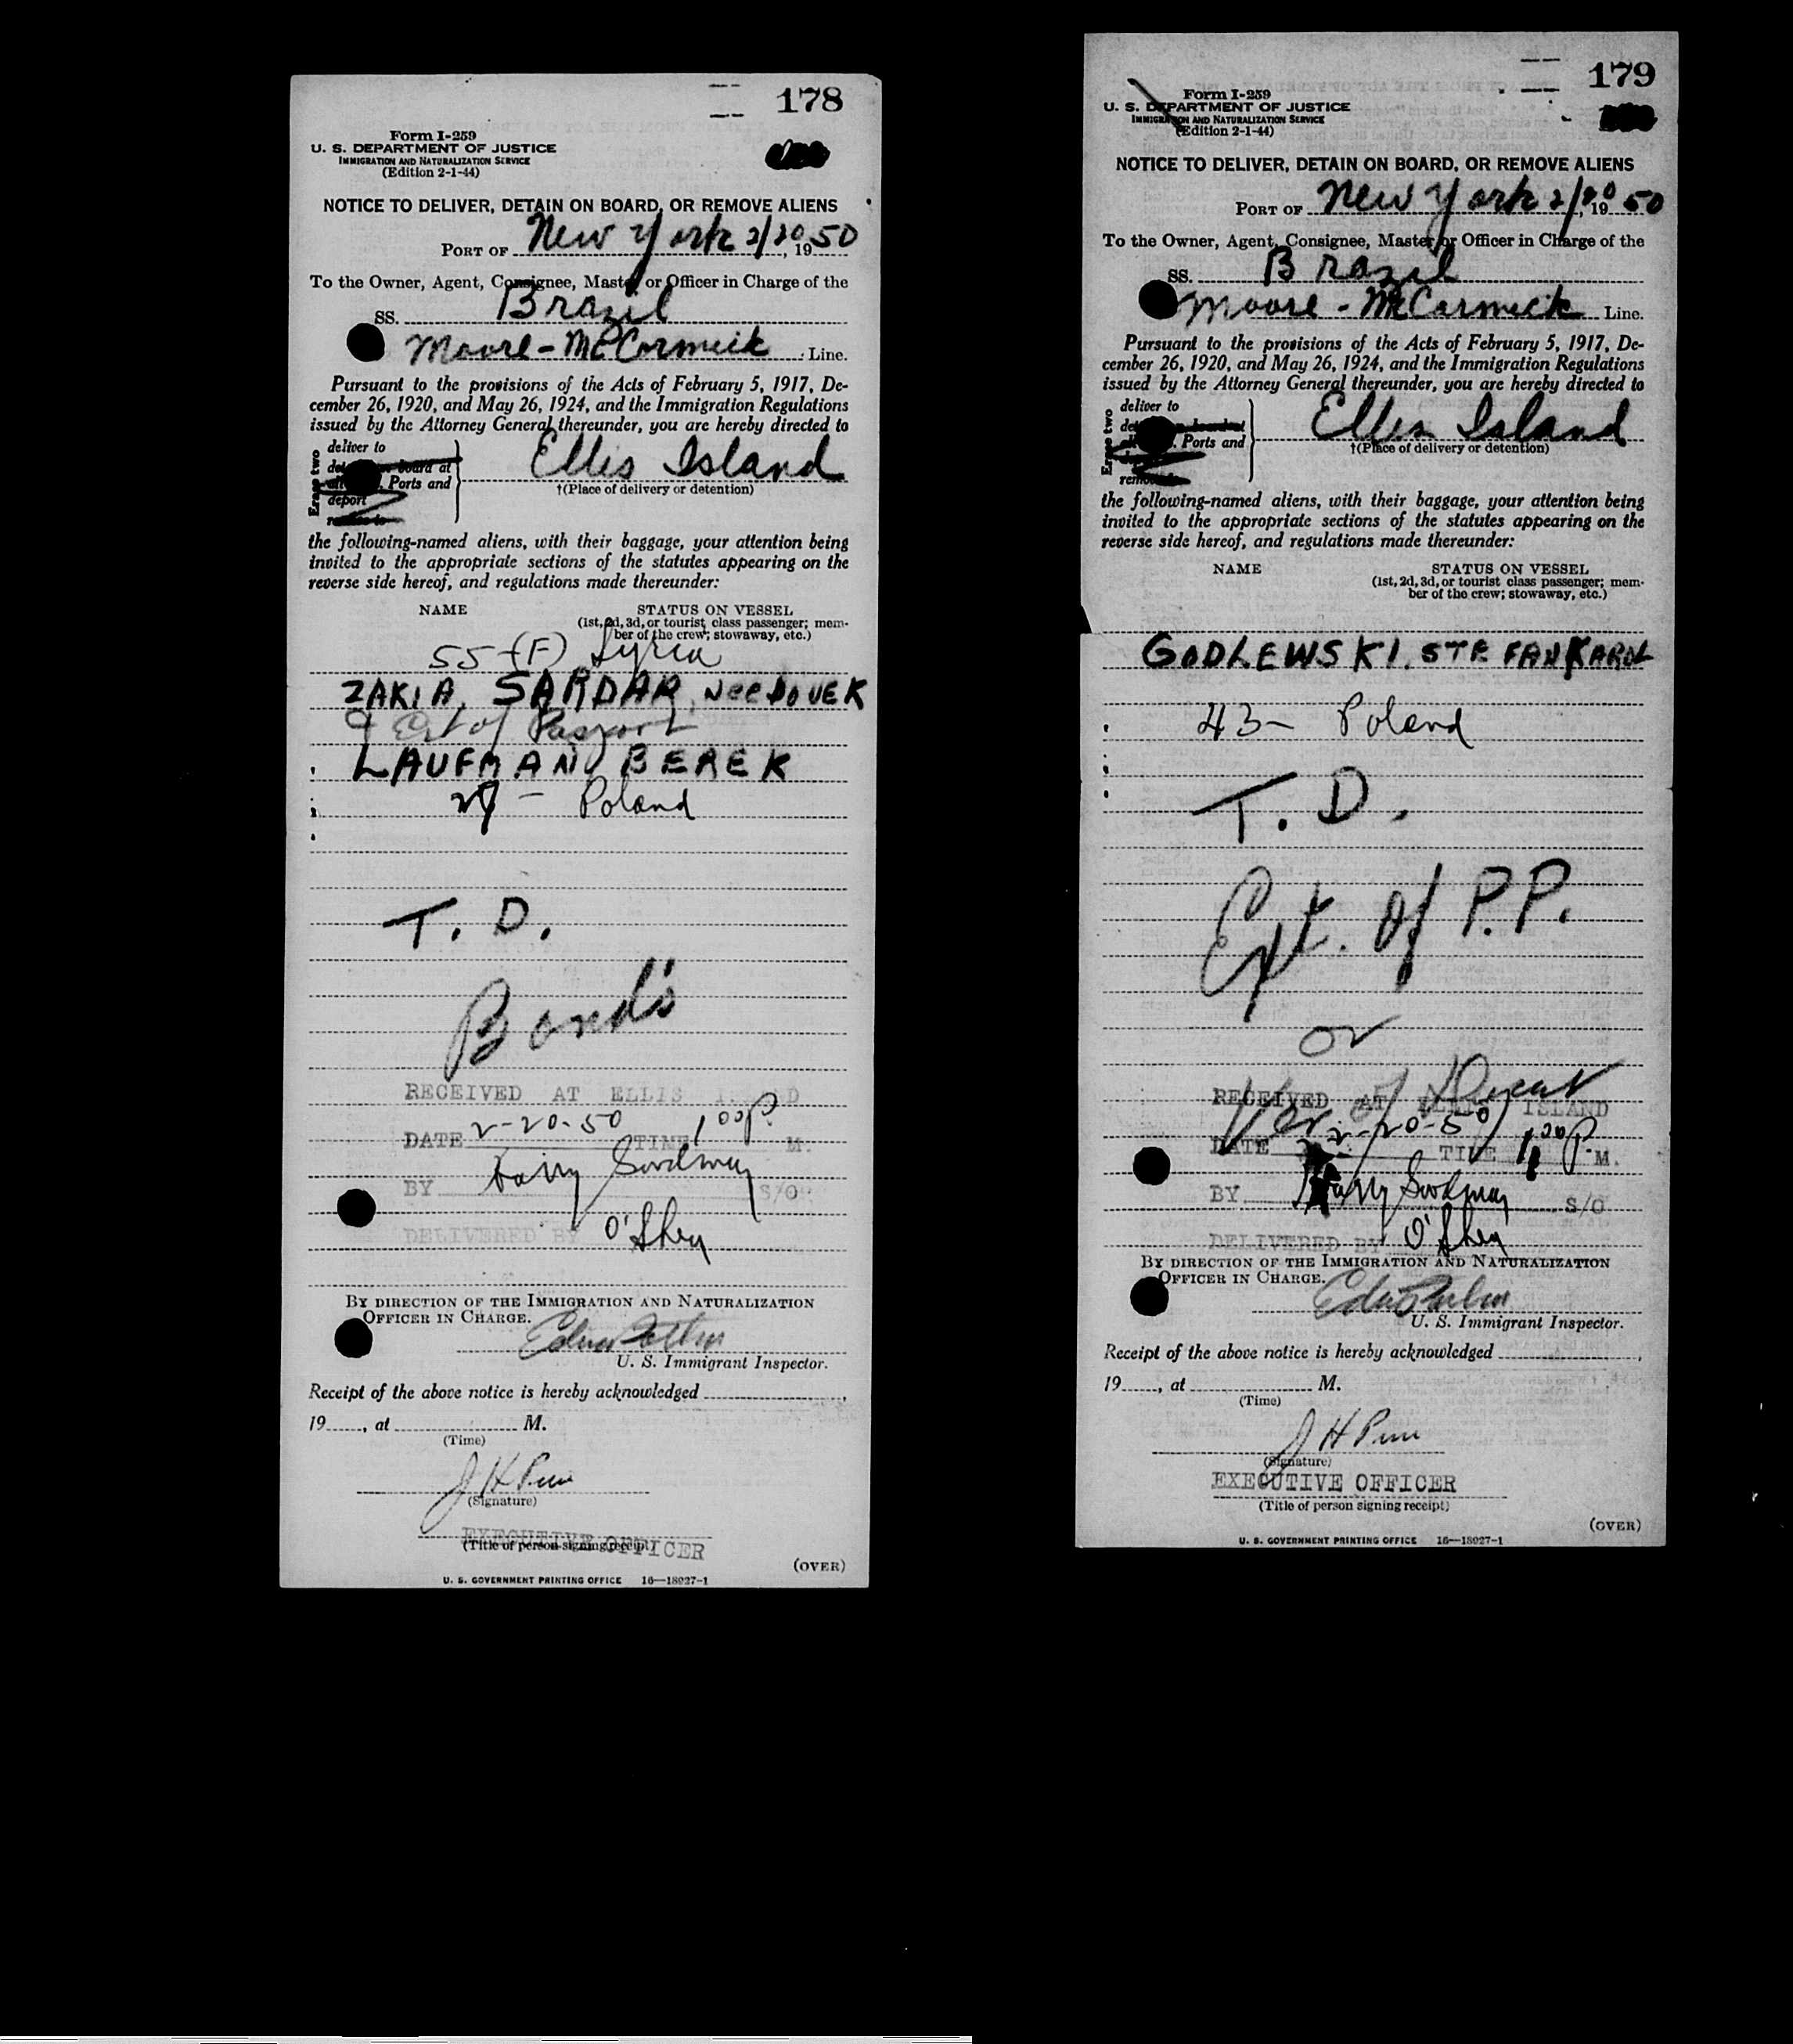 178
Form I-259
U. S. DEPARTMENT OF JUSTICE
IMMIGRATION AND NATURALIZATION SERVICE
(Edition 2-1-44)
NOTICE TO DELIVER, DETAIN ON BOARD, OR REMOVE ALIENS
PORT OF New York 2/20, 1950
To the Owner, Agent, Consignee, Master or Officer in Charge of the
SS. Brazil
Moore-McCormick Line.
Pursuant to the provisions of the Acts of February 5, 1917, De-
cember 26, 1920, and May 26, 1924, and the Immigration Regulations
issued by the Attorney General thereunder, you are hereby directed to
Erase two
deliver to
board at
Ports and
deport
Ellis Island
†(Place of delivery or detention)
the following-named aliens, with their baggage, your attention being
invited to the appropriate sections of the statutes appearing on the
reverse side hereof, and regulations made thereunder:
NAME STATUS ON VESSEL
(1st, 2d, 3d, or tourist class passenger; mem-
ber of the crew; stowaway, etc.)
55-(F) Syria
ZAKIA, SARDAR, Nee DOUEK
of Passport
LAUFMAN, BEREK
— Poland
T. D.
Bond's
RECEIVED AT ELLIS
DATE 2-20-50 TIME 1 00 P. M.
BY Harry S/O
DELIVERED BY O'Shea
BY DIRECTION OF THE IMMIGRATION AND NATURALIZATION
OFFICER IN CHARGE.
U. S. Immigrant Inspector.
Receipt of the above notice is hereby acknowledged
19, at M.
(Time)
J H
(Signature)
EXECUTIVE OFFICER
(Title of person signing receipt)
(OVER)
U. S. GOVERNMENT PRINTING OFFICE 16—18927-1
179
Form I-259
U. S. DEPARTMENT OF JUSTICE
IMMIGRATION AND NATURALIZATION SERVICE
(Edition 2-1-44)
NOTICE TO DELIVER, DETAIN ON BOARD, OR REMOVE ALIENS
PORT OF New York 2/20, 1950
To the Owner, Agent, Consignee, Master or Officer in Charge of the
SS. Brazil
Moore-McCormick Line.
Pursuant to the provisions of the Acts of February 5, 1917, De-
cember 26, 1920, and May 26, 1924, and the Immigration Regulations
issued by the Attorney General thereunder, you are hereby directed to
Erase two
deliver to
Ports and
Ellis Island
†(Place of delivery or detention)
the following-named aliens, with their baggage, your attention being
invited to the appropriate sections of the statutes appearing on the
reverse side hereof, and regulations made thereunder:
NAME STATUS ON VESSEL
(1st, 2d, 3d, or tourist class passenger; mem-
ber of the crew; stowaway, etc.)
GODLEWSKI. STEFAN KAROL
43— Poland
T. D.
Ext. of P.P.
or
RECEIVED AT ELLIS ISLAND
DATE 2-20-50 TIME P. M.
BY Harry S/O
DELIVERED BY O'Shea
BY DIRECTION OF THE IMMIGRATION AND NATURALIZATION
OFFICER IN CHARGE.
U. S. Immigrant Inspector.
Receipt of the above notice is hereby acknowledged
19, at M.
(Time)
J H
(Signature)
EXECUTIVE OFFICER
(Title of person signing receipt)
(OVER)
U. S. GOVERNMENT PRINTING OFFICE 16—18927-1